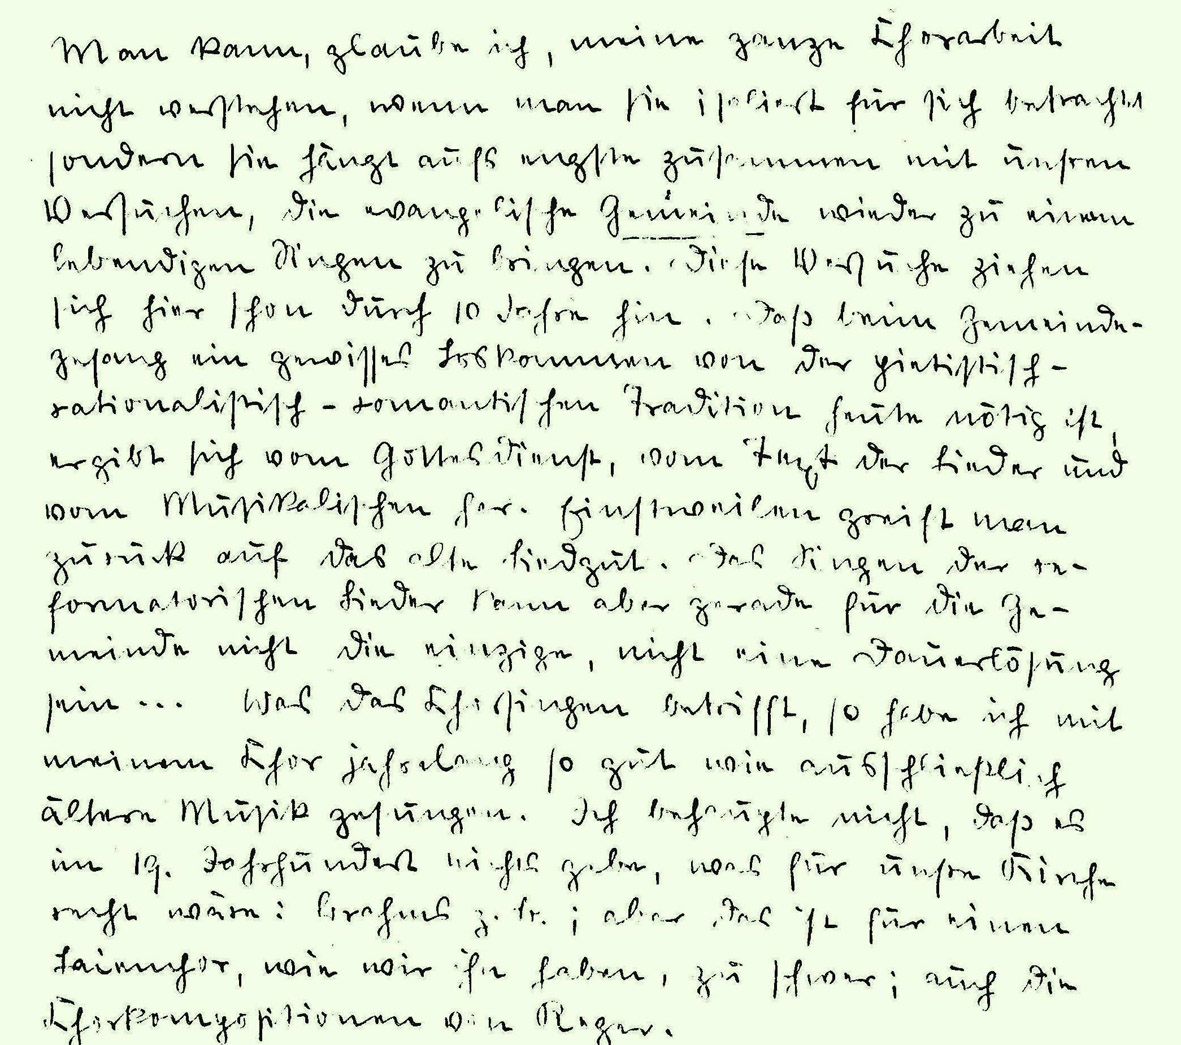 Man kann, glaube ich, meine ganze Chorarbeit
nicht verstehen, wenn man sie isoliert für sich betrachtet
sondern sie hängt aufs engste zusammen mit unseren
Versuchen, die evangelische Gemeinde wieder zu einem
lebendigen Singen zu bringen. Diese Versuche ziehen
sich hier schon durch 10 Jahre hin. Daß beim Gemeinde-
gesang ein gewisses Loskommen von der pietistisch-
rationalistisch-romantischen Tradition heute nötig ist,
ergibt sich vom Gottesdienst, vom Text der Lieder und
vom Musikalischen her. Einstweilen greift man
zurück auf das alte Liedgut. Das Singen der re-
formatorischen Lieder kann aber gerade für die Ge-
meinde nicht die einzige, nicht eine Dauerlösung
sein... Was das Chorsingen betrifft, so habe ich mit
meinem Chor jahrelang so gut wie ausschließlich
ältere Musik gesungen. Ich behaupte nicht, daß es
im 19. Jahrhundert nichts gebe, was für unsre Kirche
recht wäre: Brahms z.B.; aber das ist für einen
Laienchor, wie wir ihn haben, zu schwer; auch die
Chorkompositionen von Reger.